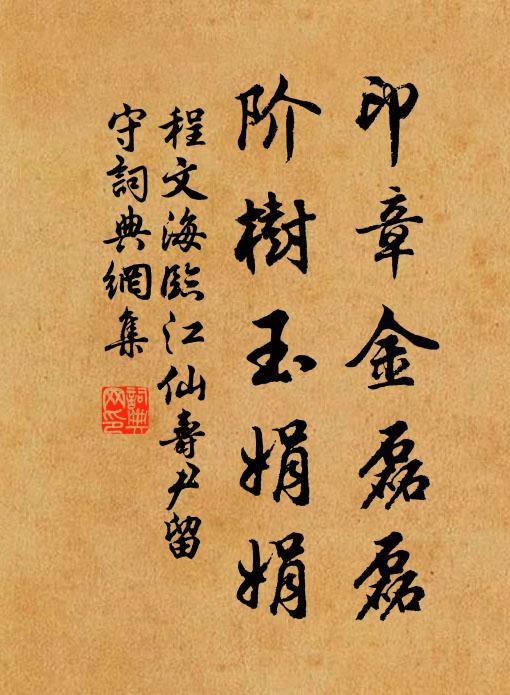 印章金磊磊
阶樹玉娟娟
程文海臨江仙壽尹留
守詞典網集
詞典
网印